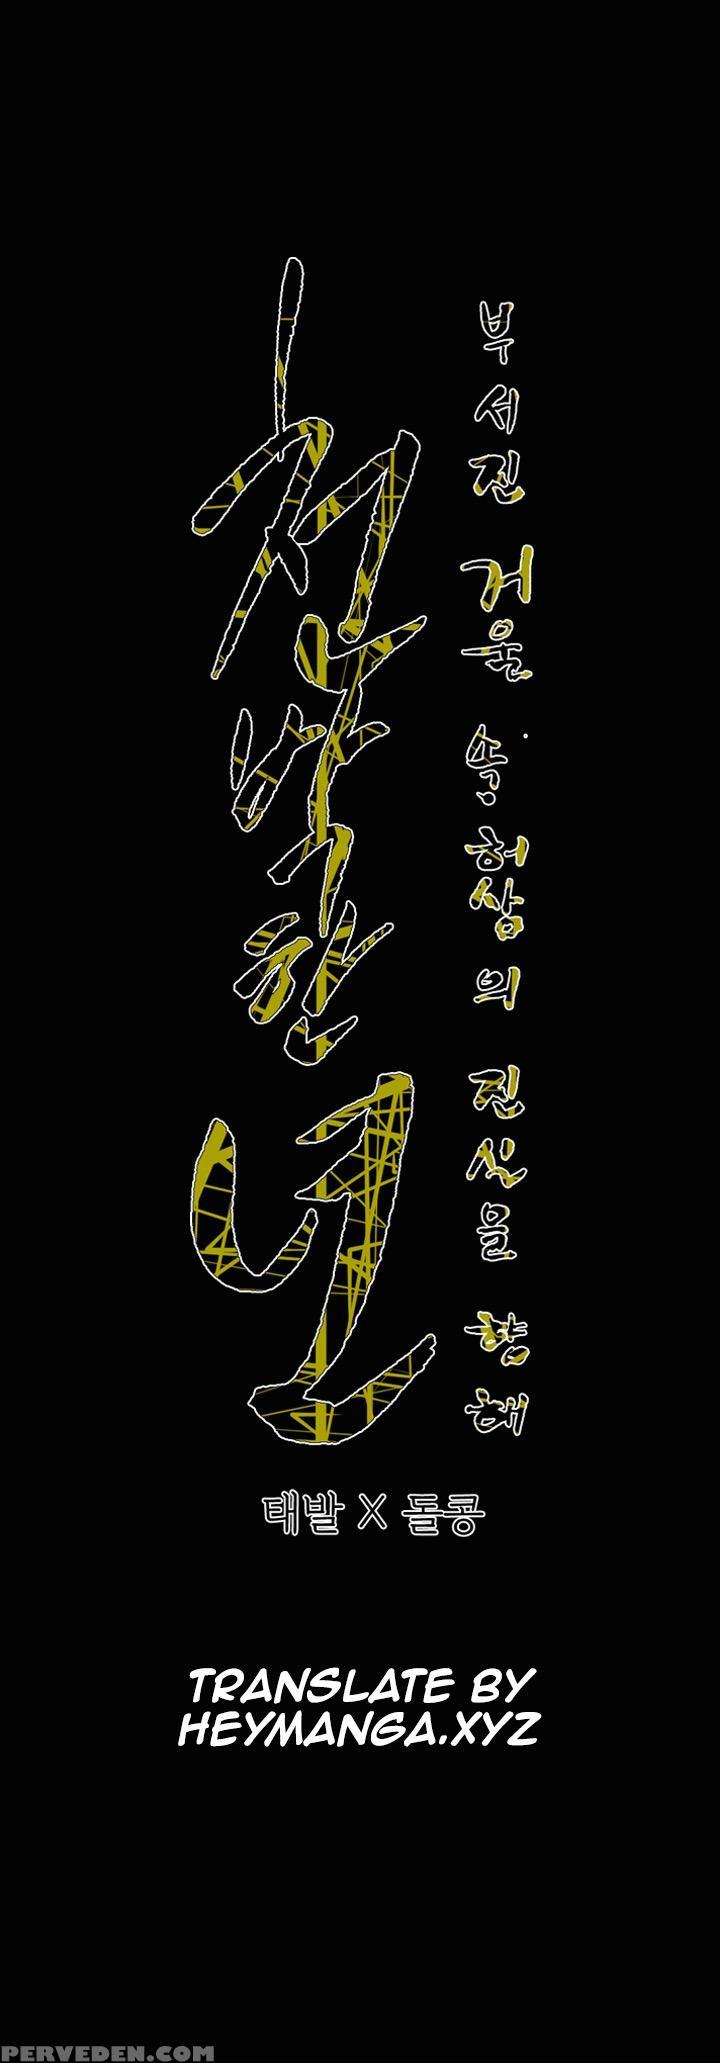 천박한 년
부서진 거울 속, 허상의 진실을 향해
태발 X 돌콩
TRANSLATE BY
HEYMANGA.XYZ
PERVEDEN.COM